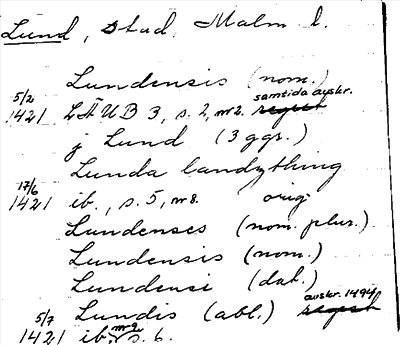 Lund, stad, Malm l.
Lundensis (nom.)
5/2 1421 LÄUB 3, s. 2, nr 2. samtida avskr. regest
j Lund (3 ggr.)
Lunda landzthing
17/6 1421 ib., s. 5, nr 8. orig
Lundenses (nom. plur.)
Lundensis (nom.)
Lundensi (dat.)
Lundis (abl.) avskr. 1494 regest
5/7 1421 ib. nr 9 s. 6.